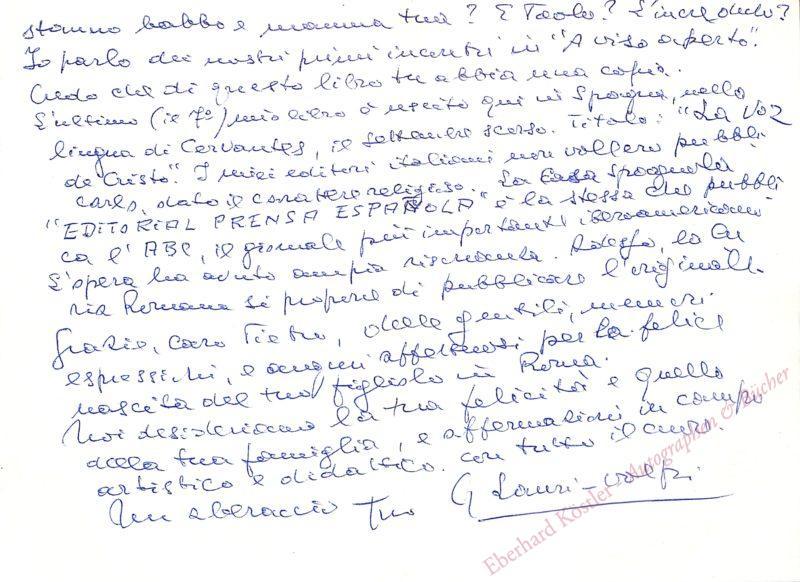 stanno babbo e mamma tua? E Paolo? L'incredulo?
Io parlo dei nostri primi incontri in "A viso aperto".
Credo che di questo libro tu abbia una copia.
L'ultimo (il 7º) mio libro è uscito qui in Spagna, nella
lingua di Cervantes, il settembre scorso. Titolo: "La Voz
de Cristo". I miei editori italiani non vollero pubbli
carlo, dato il carattere religioso. La Casa Spagnola
"EDITORIAL PRENSA ESPAÑOLA" è la stessa che pubbli
ca l'ABC, il giornale più importanti iberoamericani
L'opera ha avuto ampia risonanza. Adesso, la Cu
ria Romana si propone di pubblicare l'originale.
Grazie, caro Pietro, delle gentili, memori
espressioni, e auguri affettuosi per la felice
nascita del tuo figliolo in Roma.
Noi desideriamo la tua felicità e quella
della tua famiglia, e affermazioni in campo
artistico e didattico. Con tutto il cuore
Un abbraccio tuo G Lauri-Volpi
Eberhard Köstler Autographen & Bücher